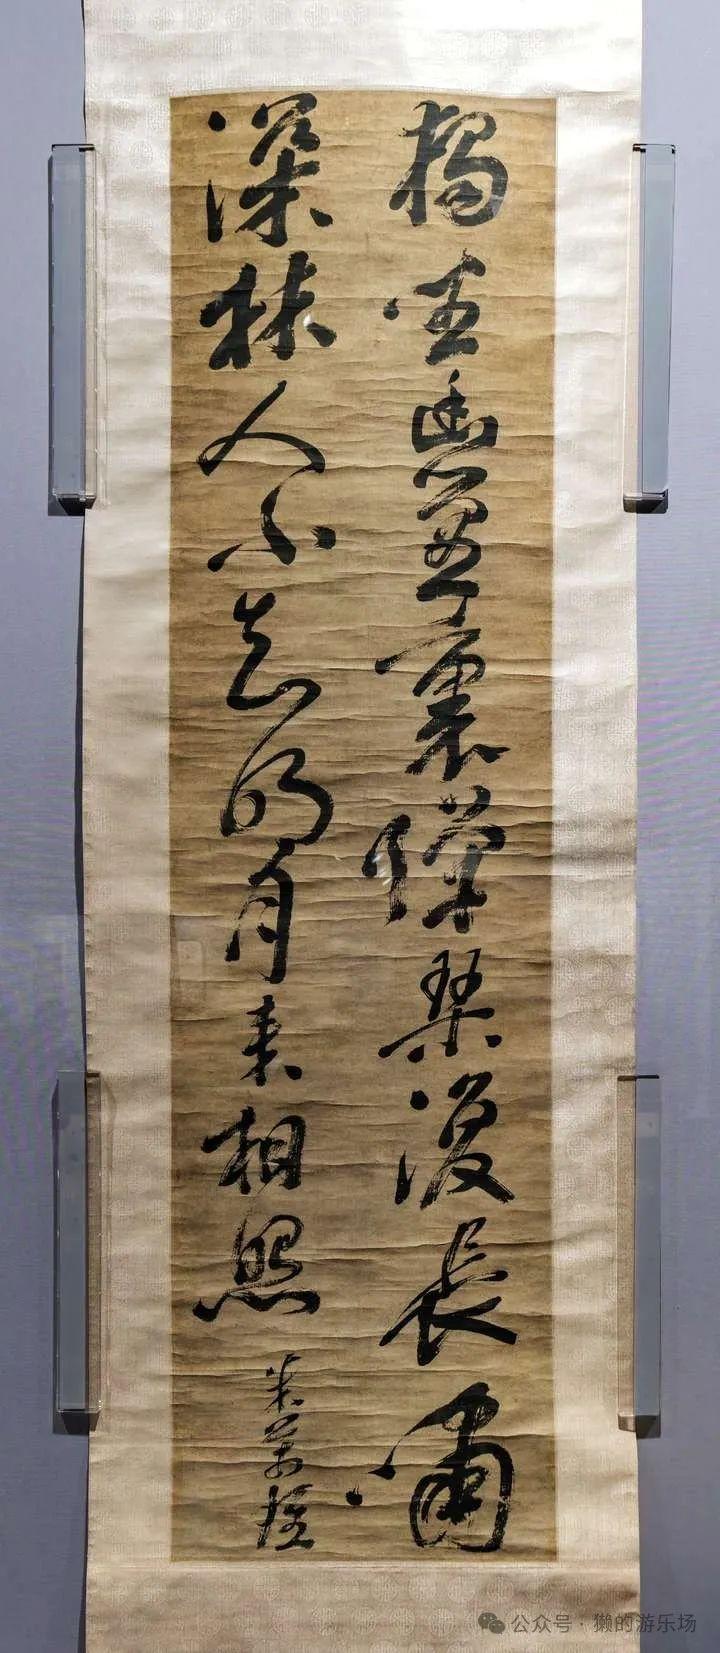 獨坐幽篁裏彈琴復長嘯
深林人不知明月來相照
米萬鍾
公众号·獭的游乐场